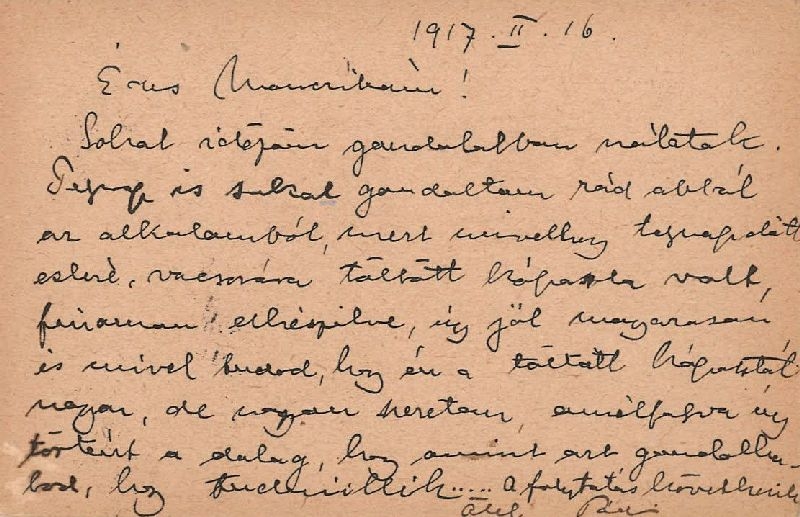 1917. II. 16.
Édes Mancikám!
Sokat időzöm gondolatban nálatok.
Tegnap is sokat gondoltam rád abból
az alkalomból, mert mivelhogy tegnapelőtt
estére, vacsorára töltött káposzta volt,
finoman elkészitve, úgy jól magyarosan
és mivel tudod, hogy én a töltött káposztát
nagyon, de nagyon szeretem, amolyfajva úgy
történt a dolog, hogy amint azt gondolha-
tod, hogy A folytatás következik
Ölel